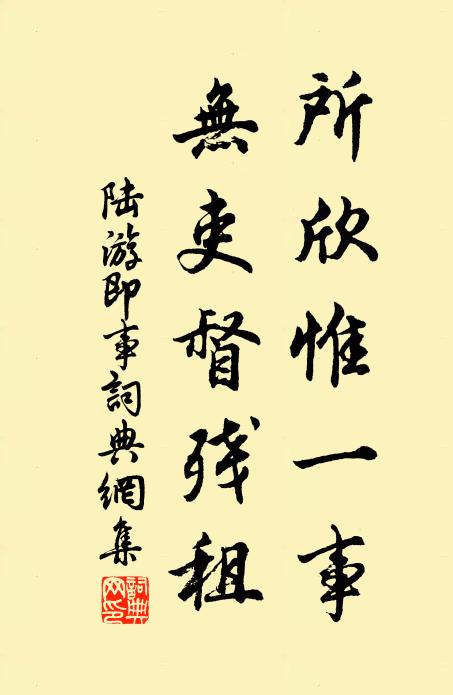 所欣惟一事
無吏督残租
陆游即事詞典網集
詞典网印